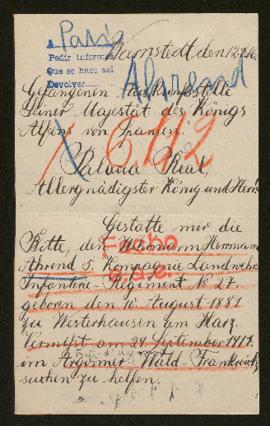 A París
Pedir informes
Que se hace saber
Devolver
Warnstedt, den 12.9.16.
Gefangenen - Auskunftstelle
Seiner Majestät des Königs
Alfons von Spanien.
Ahrend
642
Palacio Real,
Allergnädigster König und Herr!
Gestatte mir die
Bitte, den Wehrmann Hermann
Ahrend 5. Kompagnie Landwehr
Infanterie-Regiment No 27.
geboren den 10. August 1881
zu Westerhausen am Harz.
Vermißt am 24. September 1914.
im Argonner Wald-Frankreich
suchen zu helfen.